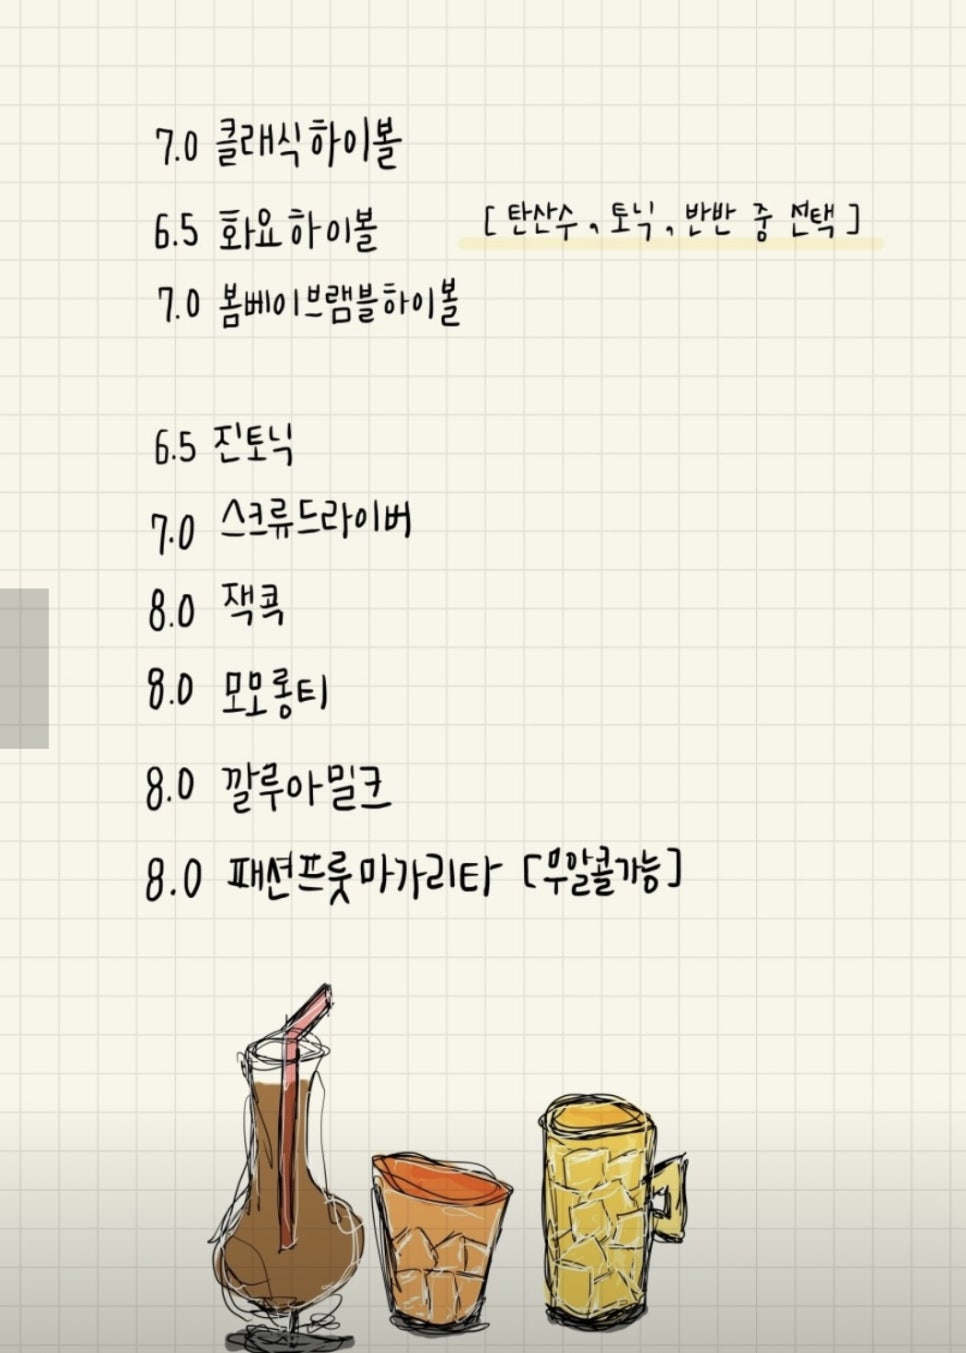 7.0 클래식하이볼
6.5 화요하이볼 [ 탄산수, 토닉, 반반 중 선택 ]
7.0 봄베이브램블하이볼
6.5 진토닉
7.0 스크류드라이버
8.0 잭콕
8.0 모모롱티
8.0 깔루아밀크
8.0 패션프룻마가리타 [무알콜가능]